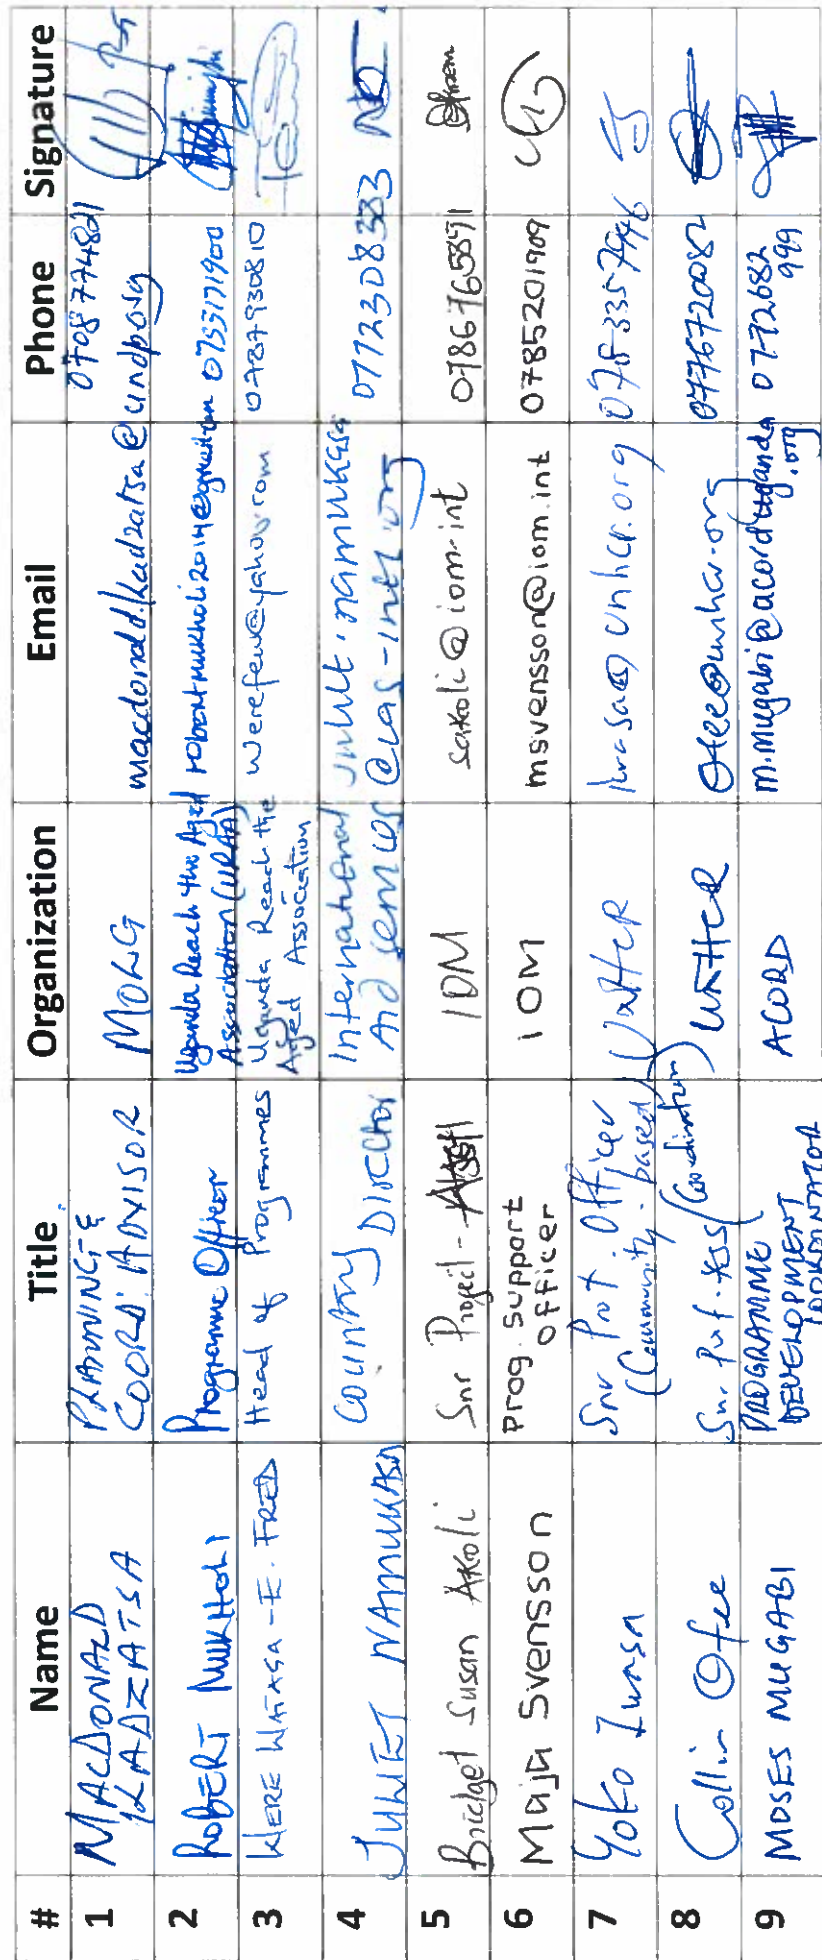 # Name Title Organization Email Phone Signature
1 MACDONALD KADZATSA PLANNING & COORD. ADVISOR MOLG macdonald.kadzatsa@undp.org 0708774821
2 ROBERT MUKHOLI Programme Officer Uganda Reach the Aged Association (URAA) robertmukholi2014@gmail.com 0753171900
3 WERE WATAGA-E. FRED Head of Programmes Uganda Reach the Aged Association werefew@yahoo.com 0787930810
4 JULIET NAMUKASA COUNTRY DIRECTOR International Aid Services juliet.namukasa@ias-intl.org 0772308383
5 Bridget Susan Akoli Snr Project - Asst IOM sakoli@iom.int 0786765891
6 Maja Svensson prog. support officer IOM msvensson@iom.int 0785201909
7 Yoko Iwasa Snr Prot. Officer (Community-based) UNHCR iwasa@unhcr.org
8 Collin Ofee (Coordination) UNHCR ofee@unhcr.org 0776720082
9 MOSES MUGABI PROGRAMME DEVELOPMENT COORDINATOR ACORD m.mugabi@acorduganda.org 0772682999